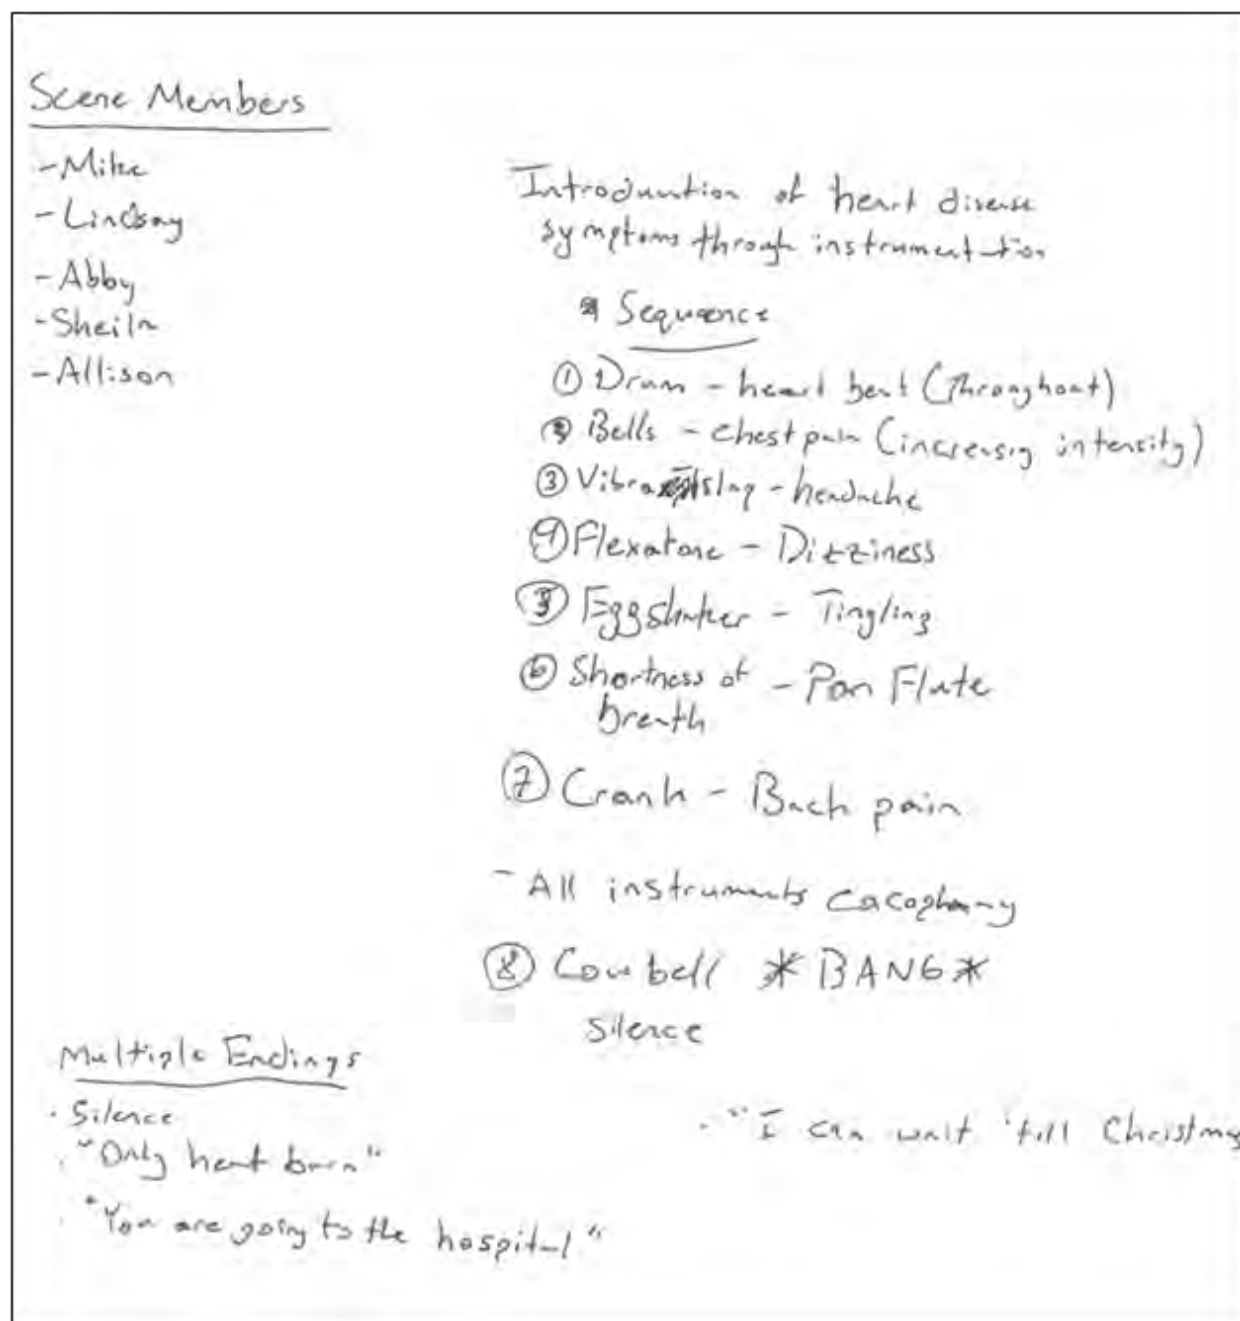 Scene Members
-Mike
-Lindsay
-Abby
-Sheila
-Allison
Introduction of heart disease
symptoms through instrumentation
Sequence
① Drum - heart beat (Throughout)
② Bells - chest pain (increasing intensity)
③ Vibraslap - headache
④ Flexatone - Dizziness
⑤ Eggshaker - Tingling
⑥ Shortness of - Pan Flute
breath
⑦ Crank - Back pain
- All instruments cacophony
⑧ Cowbell *BANG*
silence
Multiple Endings
· Silence
· "Only heart burn"
· "You are going to the hospital"
· "I can wait 'till Christmas